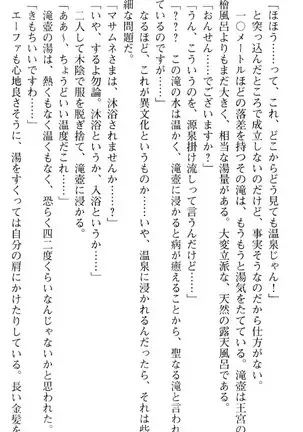 「ほほう……って、これ、どこからどう見ても温泉じゃん！」
と突っ込んだところで成立しないのだけど、事実そうなのだから仕方がない。
一〇メートルほどの落差を持つその滝は、もうもうと湯気をたてている。滝壺は王宮の
檜風呂よりもまだ大きく、相当な湯量がある。大変立派な、天然の露天風呂である。
「おんせん……でございますか？」
「うん、こういうのを、源泉掛け流しって言うんだけど……」
「？？？　この滝の水は温かく、滝壺に浸かると病が癒えることから、聖なる滝と言われ
ているのですが……」
なるほど、これが異文化というものか……いや、温泉に浸かれるんだったら、それは些
細な問題だ。
「マサムネさまは、沐浴されませんか……？」
「いや、するよ勿論。沐浴というか、入浴というか」
二人して木陰で服を脱ぎ捨て、滝壺に浸かる。
「ああ〜、ちょうどいい温度だこれ……」
滝壺の湯は、熱くもなく温くもなく、恐らく四二度くらいなんじゃないかと思われた。
「きもちいいですわ……」
エーファも心地良さそうに、湯をすくっては自分の肩にかけたりしている。長い金髪を